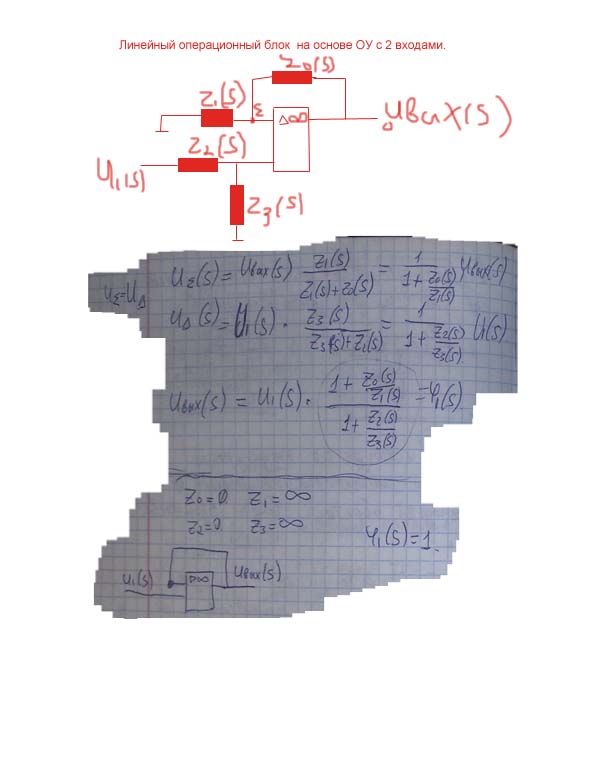 Линейный операционный блок на основе ОУ с 2 входами.
Z0(S)
Z1(S) Σ Δ∞ Uвых(S)
Z2(S)
U1(S)
Z3(S)
UΣ=UΔ
UΣ(S)= Uвых(S) Z1(S)/(Z1(S)+Z0(S)) = 1/(1+Z0(S)/Z1(S)) Uвых(S)
UΔ(S)= U1(S) · Z3(S)/(Z3(S)+Z2(S)) = 1/(1+Z2(S)/Z3(S)) U1(S)
Uвых(S) = U1(S) · (1+Z0(S)/Z1(S))/(1+Z2(S)/Z3(S)) = φ1(S)
Z0=0 Z1=∞
Z2=0 Z3=∞ φ1(S)=1.
U1(S) ▷∞ Uвых(S)